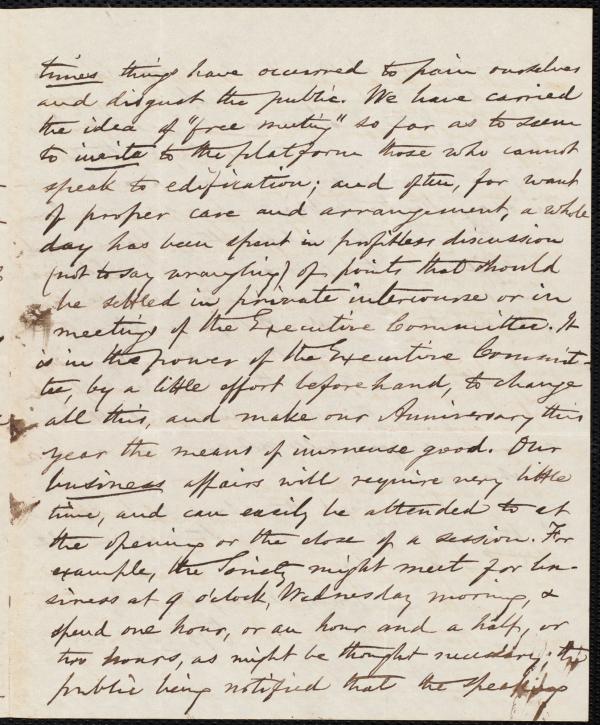 times things have occurred to pain ourselves
and disgust the public. We have carried
the idea of "free meeting" so far as to seem
to invite to the platform those who cannot
speak to edification; and often, for want
of proper care and arrangement, a whole
day has been spent in profitless discussion
(not to say wrangling) of points that should
be settled in private intercourse or in
meetings of the Executive Committee. It
is in the power of the Executive Commit-
tee, by a little effort beforehand, to change
all this, and make our Anniversary this
year the means of immense good. Our
business affairs will require very little
time, and can easily be attended to at
the opening or the close of a session. For
example, the Society might meet for bu-
siness at 9 o'clock, Wednesday morning, &
spend one hour, or an hour and a half, or
two hours, as might be thought necessary; the
public being notified that the speaking